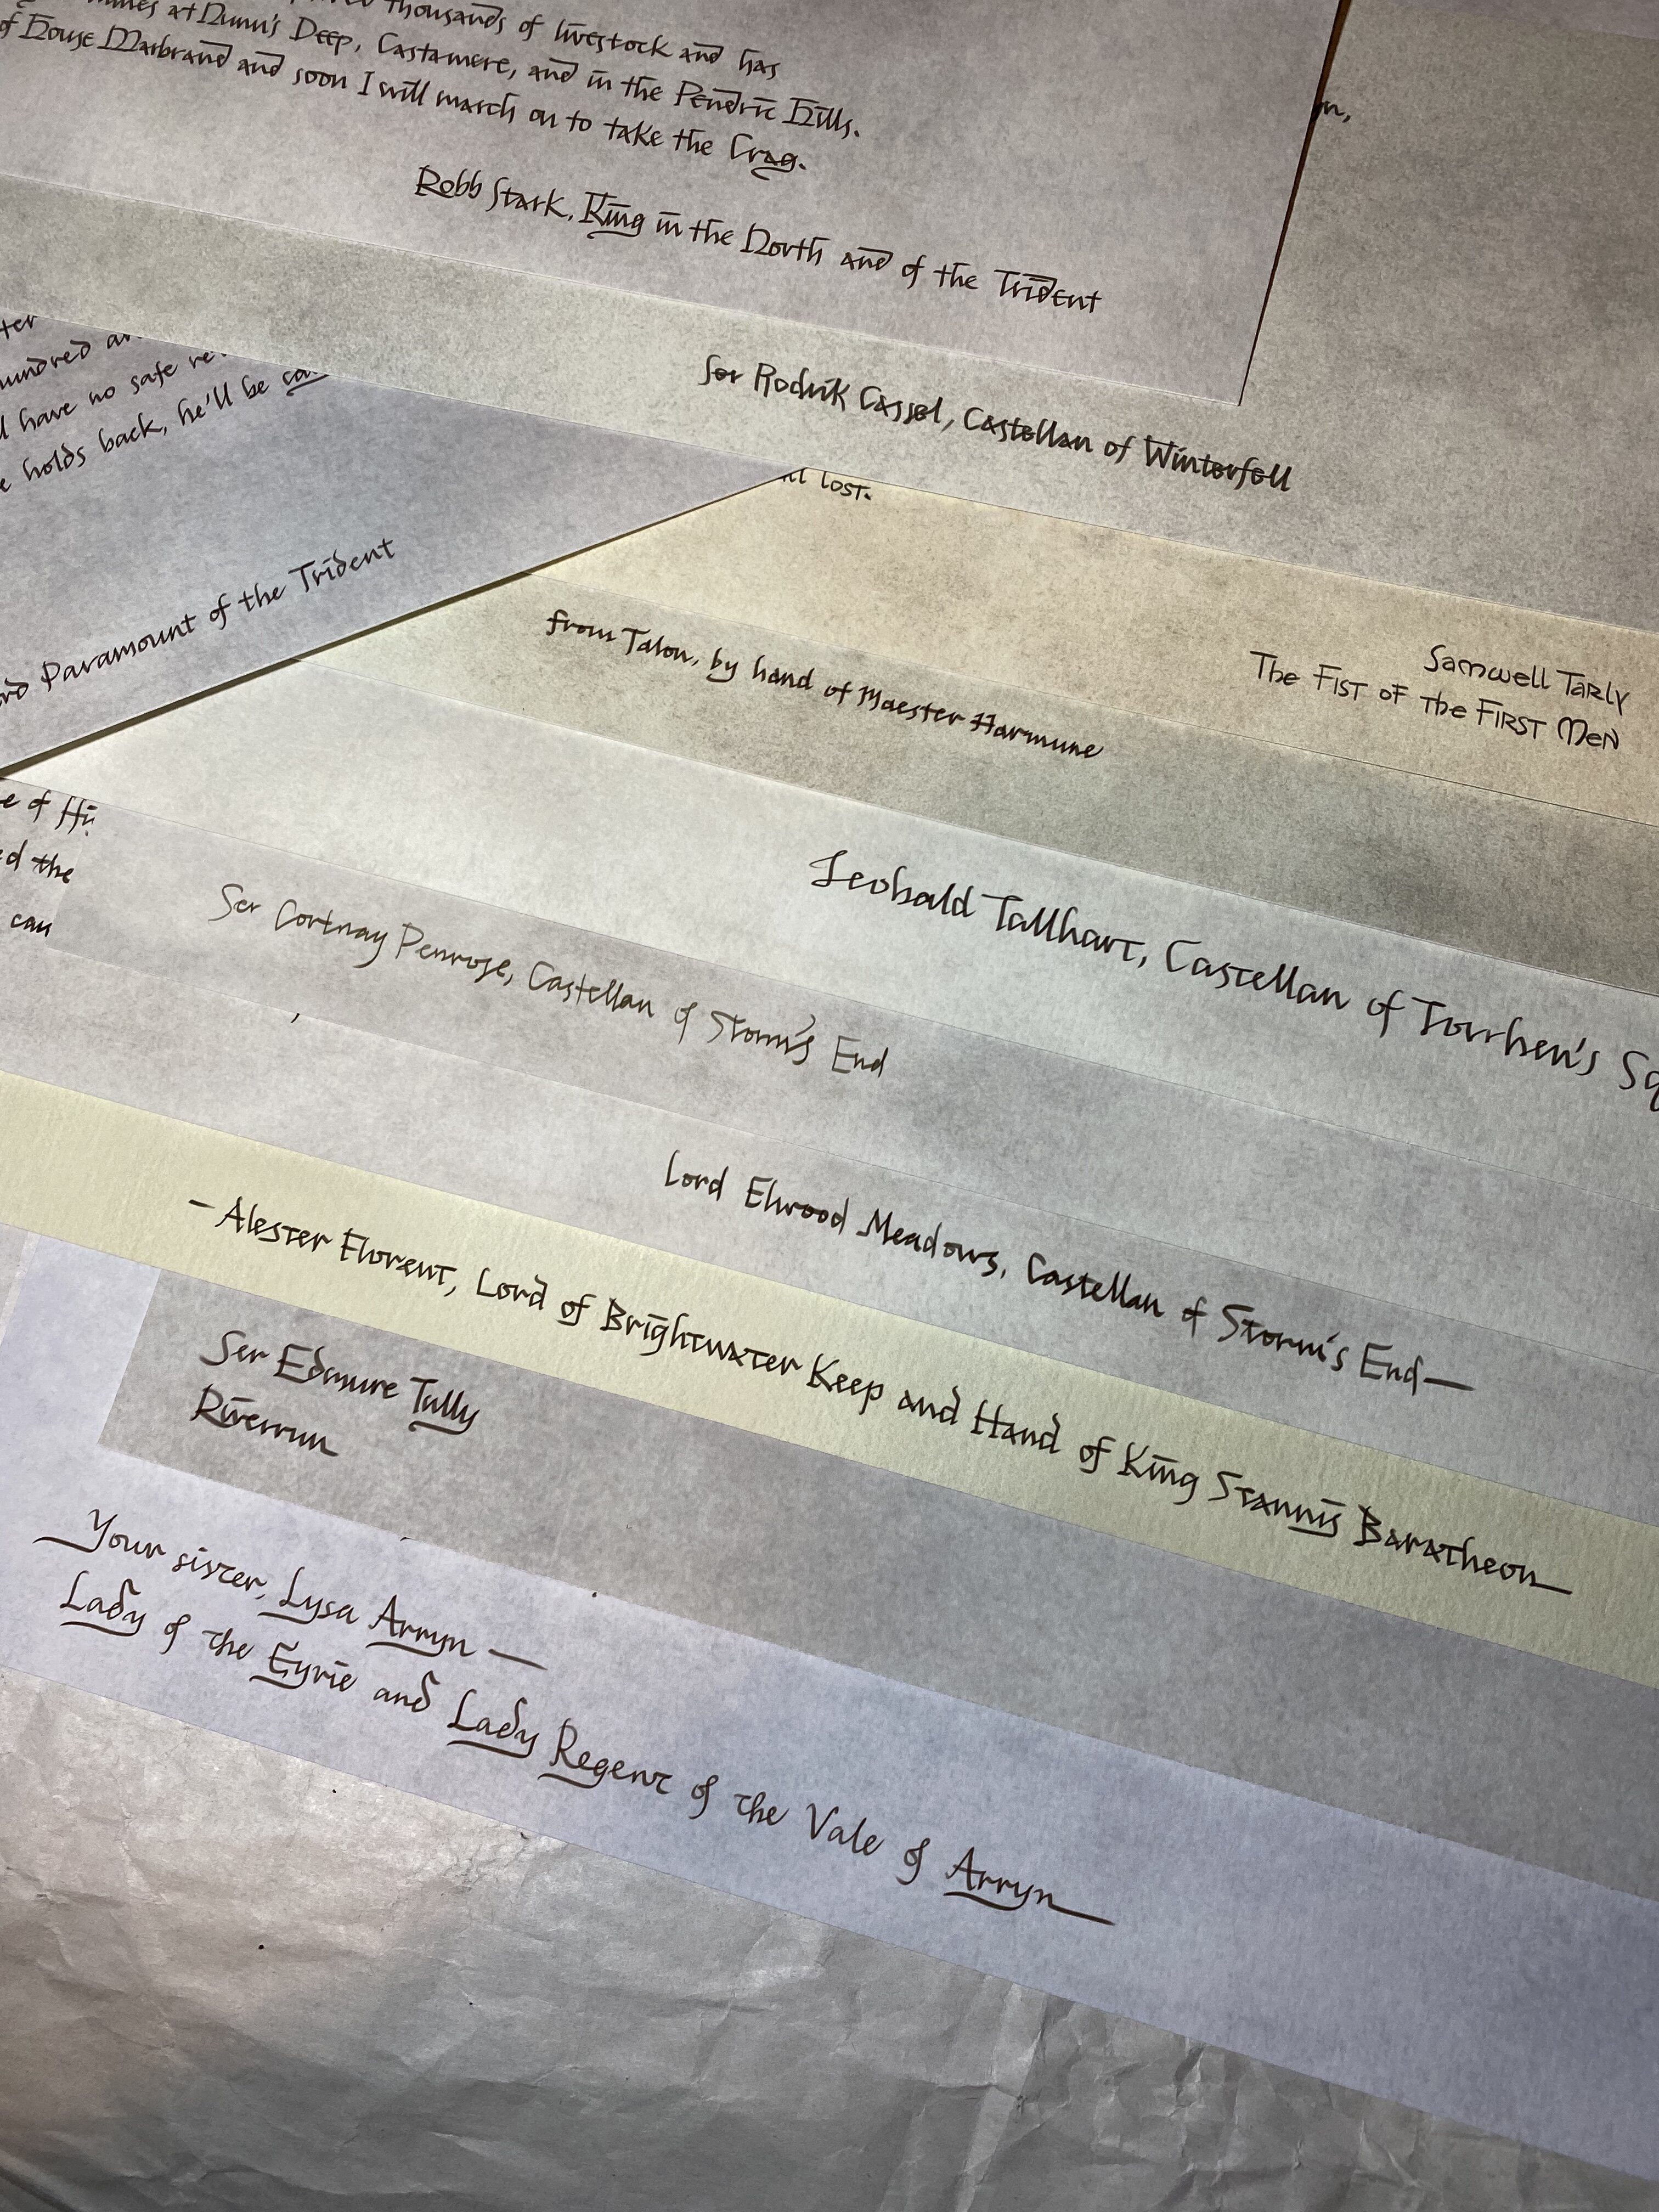 thousands of livestock and has
mines at Nunn's Deep, Castamere, and in the Pendric Hills.
of House Marbrand and soon I will march on to take the Crag.
Robb Stark, King in the North and of the Trident
Ser Rodrik Cassel, Castellan of Winterfell
have no safe
holds back, he'll be
Paramount of the Trident
lost.
Samwell Tarly
The Fist of the First Men
from Talon, by hand of Maester Harmune
Leobald Tallhart, Castellan of Torrhen's Sq
of
the
can
Ser Cortnay Penrose, Castellan of Storm's End
Lord Elwood Meadows, Castellan of Storm's End—
—Alester Florent, Lord of Brightwater Keep and Hand of King Stannis Baratheon—
Ser Edmure Tully
Riverrun
Your sister, Lysa Arryn —
Lady of the Eyrie and Lady Regent of the Vale of Arryn—